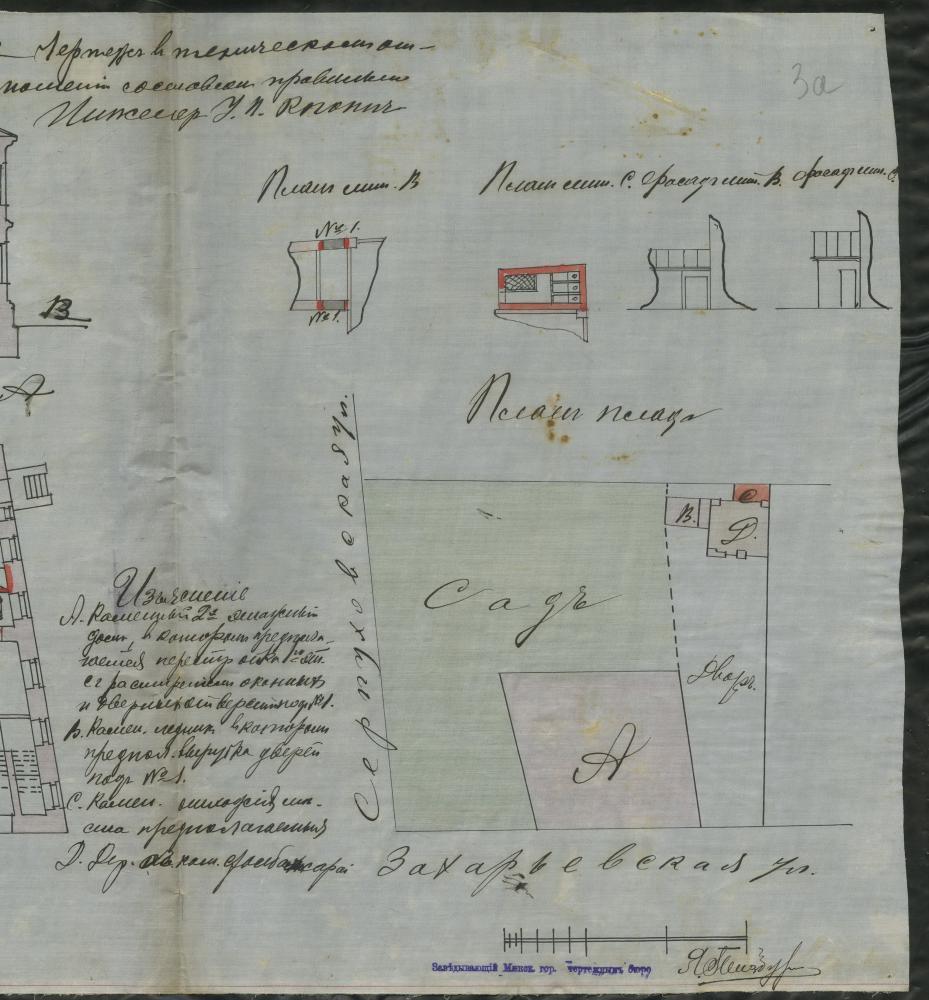 Чертежъ въ техническомъ от-
ношеніи составленъ правильно
Инженер У. П.
3а
Планъ лит. В
Планъ лит. С. Фасадъ лит. В. Фасадъ лит. С.
№ 1.
№ 1.
В
А
Планъ плаца
Серпуховская ул.
С
В.
Д.
Садъ
Дворъ.
А
Изъясненіе
А. Каменный 2х этажный
домъ, въ которомъ предпола-
гается
съ расширеніемъ оконныхъ
и дверныхъ №1.
В. Камен. ледникъ въ которомъ
предпол. вырубка дверей
подъ № 1.
С. Камен.
предполагаемыя
Д. Дер.
Захарьевская ул.
Завѣдывающій Минск. гор. чертежнымъ бюро